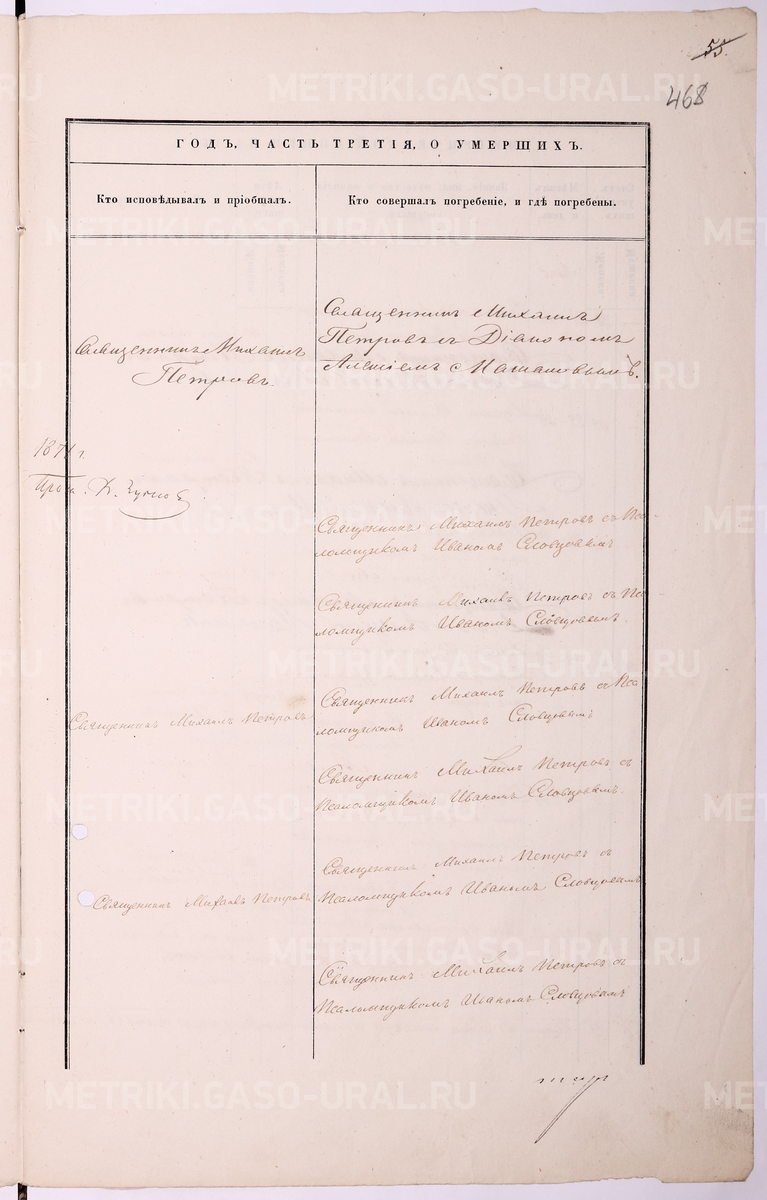 55.
468
ГОДЪ, ЧАСТЬ ТРЕТІЯ, О УМЕРШИХЪ.
Кто исповѣдывалъ и пріобщалъ.
Кто совершалъ погребеніе, и гдѣ погребены.
Священникъ Михаилъ
Петровъ съ Діакономъ
Алексіемъ
Священникъ Михаилъ
Петровъ.
1871 г.
Священникъ Михаилъ Петровъ съ Пса-
ломщикомъ Иваномъ Словцовымъ
Священникъ Михаилъ Петровъ съ Пса-
ломщикомъ Иваномъ Словцовымъ.
Священникъ Михаилъ Петровъ
Священникъ Михаилъ Петровъ съ Пса-
ломщикомъ Иваномъ Словцовымъ
Священникъ Михаилъ Петровъ съ
Псаломщикомъ Иваномъ Словцовымъ.
Священникъ Михаилъ Петровъ
Священникъ Михаилъ Петровъ съ
Псаломщикомъ Иваномъ Словцовымъ
Священникъ Михаилъ Петровъ съ
Псаломщикомъ Иваномъ Словцовымъ
METRIKI.GASO-URAL.RU